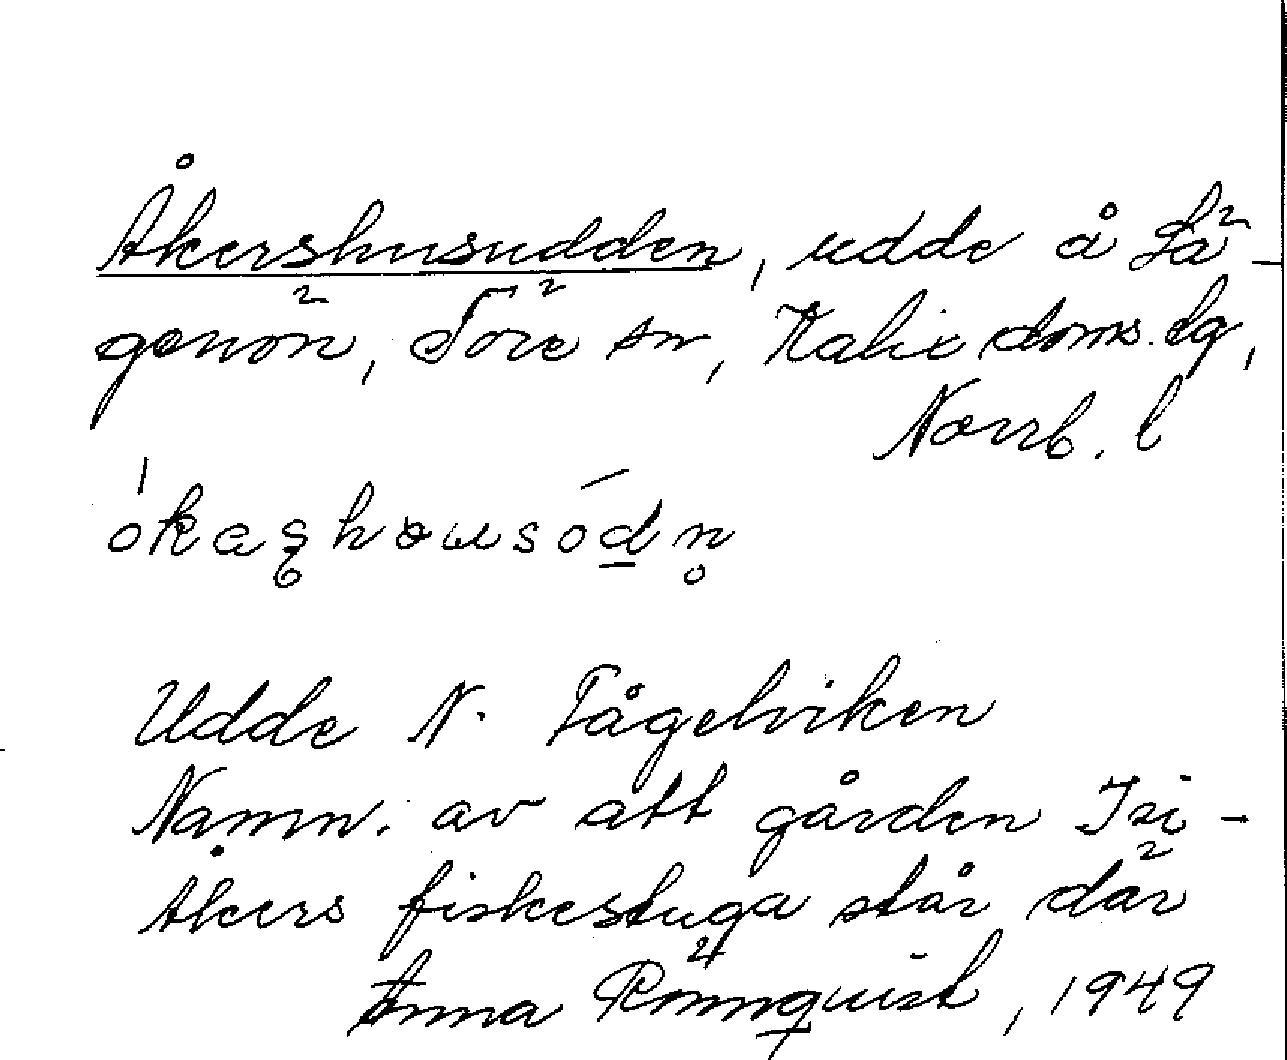 Åkershusudden, udde å Lä-
genön, Töre sn, Kalix doms. lg,
Norrb. l
Udde N. Fågelviken
Namn. av att gården Isi-
Åkers fiskestuga står där
Anna Rönnquist, 1949